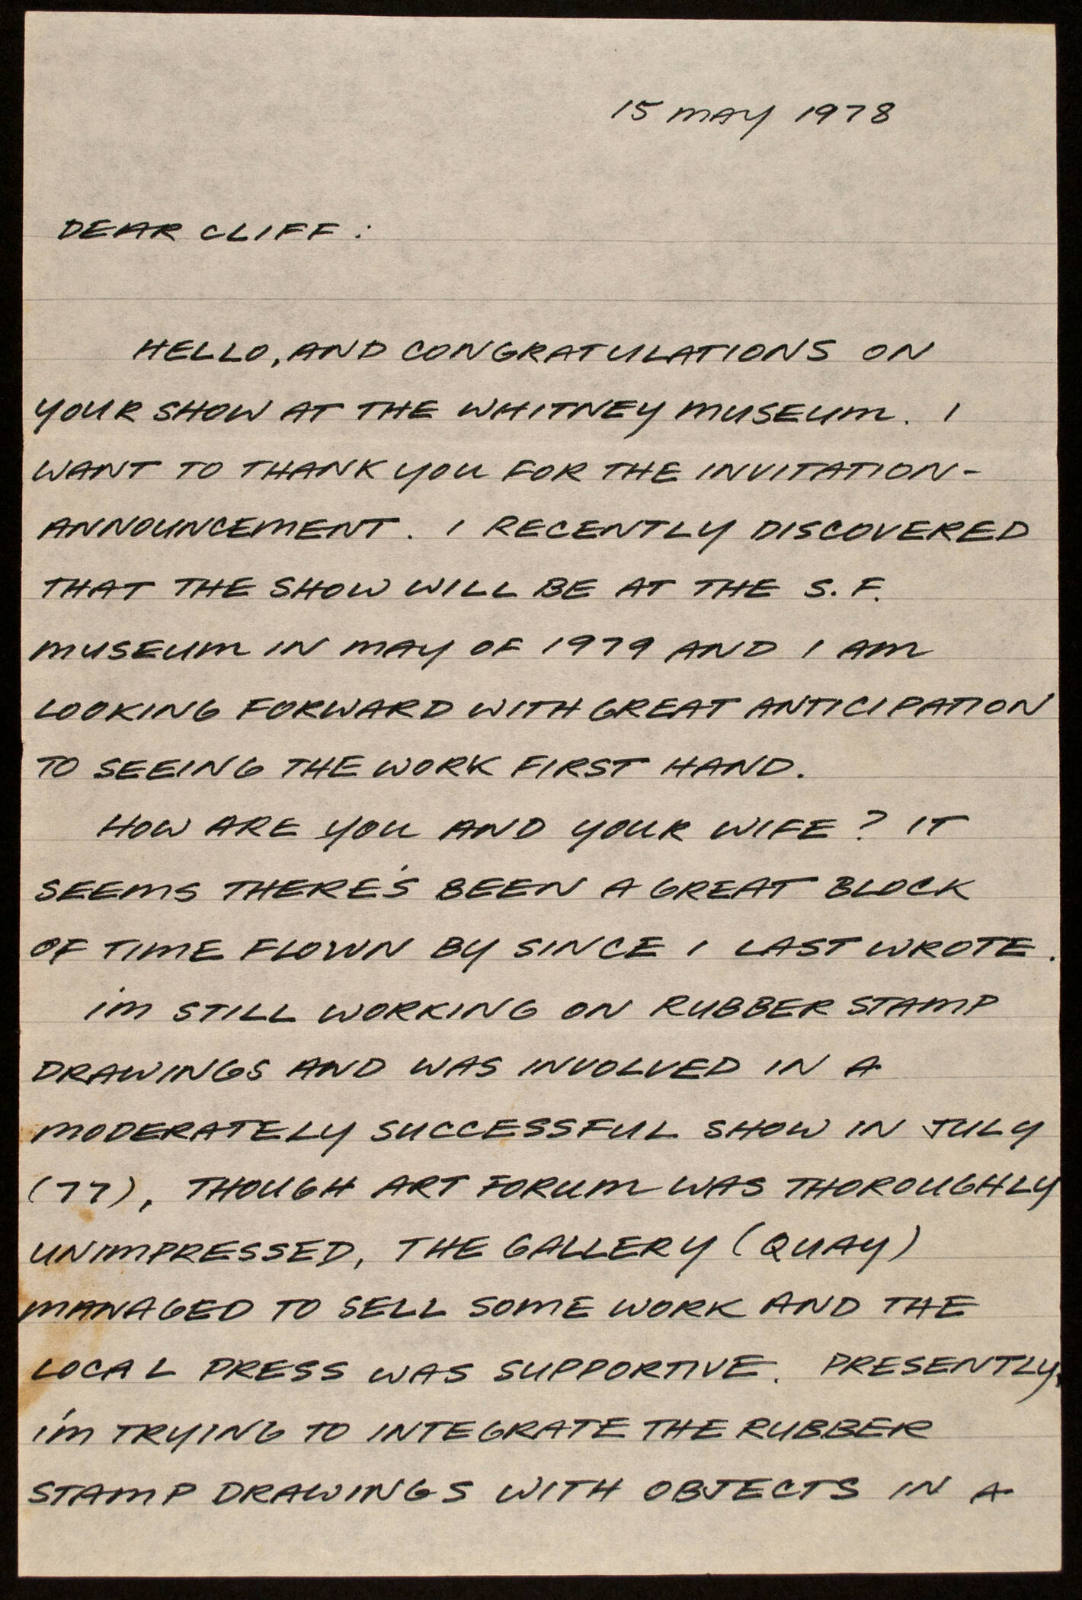 15 MAY 1978
DEAR CLIFF:
HELLO, AND CONGRATULATIONS ON
YOUR SHOW AT THE WHITNEY MUSEUM. I
WANT TO THANK YOU FOR THE INVITATION-
ANNOUNCEMENT. I RECENTLY DISCOVERED
THAT THE SHOW WILL BE AT THE S.F.
MUSEUM IN MAY OF 1979 AND I AM
LOOKING FORWARD WITH GREAT ANTICIPATION
TO SEEING THE WORK FIRST HAND.
HOW ARE YOU AND YOUR WIFE? IT
SEEMS THERE'S BEEN A GREAT BLOCK
OF TIME FLOWN BY SINCE I LAST WROTE.
I'M STILL WORKING ON RUBBER STAMP
DRAWINGS AND WAS INVOLVED IN A
MODERATELY SUCCESSFUL SHOW IN JULY
(77), THOUGH ART FORUM WAS THOROUGHLY
UNIMPRESSED, THE GALLERY (QUAY)
MANAGED TO SELL SOME WORK AND THE
LOCAL PRESS WAS SUPPORTIVE. PRESENTLY,
I'M TRYING TO INTEGRATE THE RUBBER
STAMP DRAWINGS WITH OBJECTS IN A